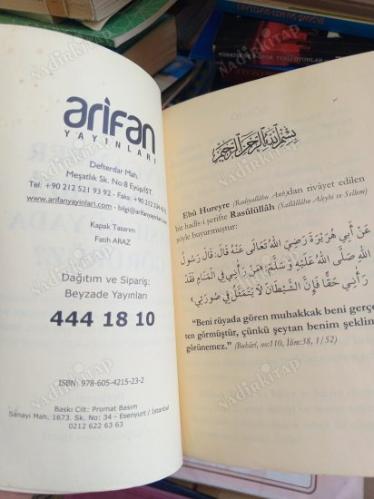 arifan
YAYINLARI
Defterdar Mah.
Meşatlık Sk. No:8 Eyüp/İST
Tel: +90 212 521 93 92 - Faks: +90 212
www.arifanyayinlari.com - bilgi@arifanyayinlari.com
Kapak Tasarım
Fatih ARAZ
Dağıtım ve Sipariş:
Beyzade Yayınları
444 18 10
ISBN: 978-605-4215-23-2
Baskı Cilt: Promat Basım
Sanayi Mah. 1673. Sk. No: 34 - Esenyurt / İstanbul
0212 622 63 63
بسم الله الرحمن الرحيم
Ebû Hureyre (Radıyallâhu Anh)dan rivâyet edilen
bir hadîs-i şerîfte Rasûlüllâh (Sallâllâhu Aleyhi ve Sellem)
şöyle buyurmuştur:
عَنْ أَبِي هُرَيْرَةَ رَضِيَ اللهُ تَعَالَى عَنْهُ قَالَ: قَالَ رَسُولُ
اللهِ صَلَّى اللهُ عَلَيْهِ وَسَلَّمَ: «مَنْ رَآنِي فِي الْمَنَامِ فَقَدْ
رَآنِي حَقًّا فَإِنَّ الشَّيْطَانَ لَا يَتَمَثَّلُ فِي صُورَتِي»
“Beni rüyada gören muhakkak beni gerçek-
ten görmüştür, çünkü şeytan benim şeklim
görünemez.” (Buhârî, no:110, İlim:38, 1/52)
NADİRKİTAP